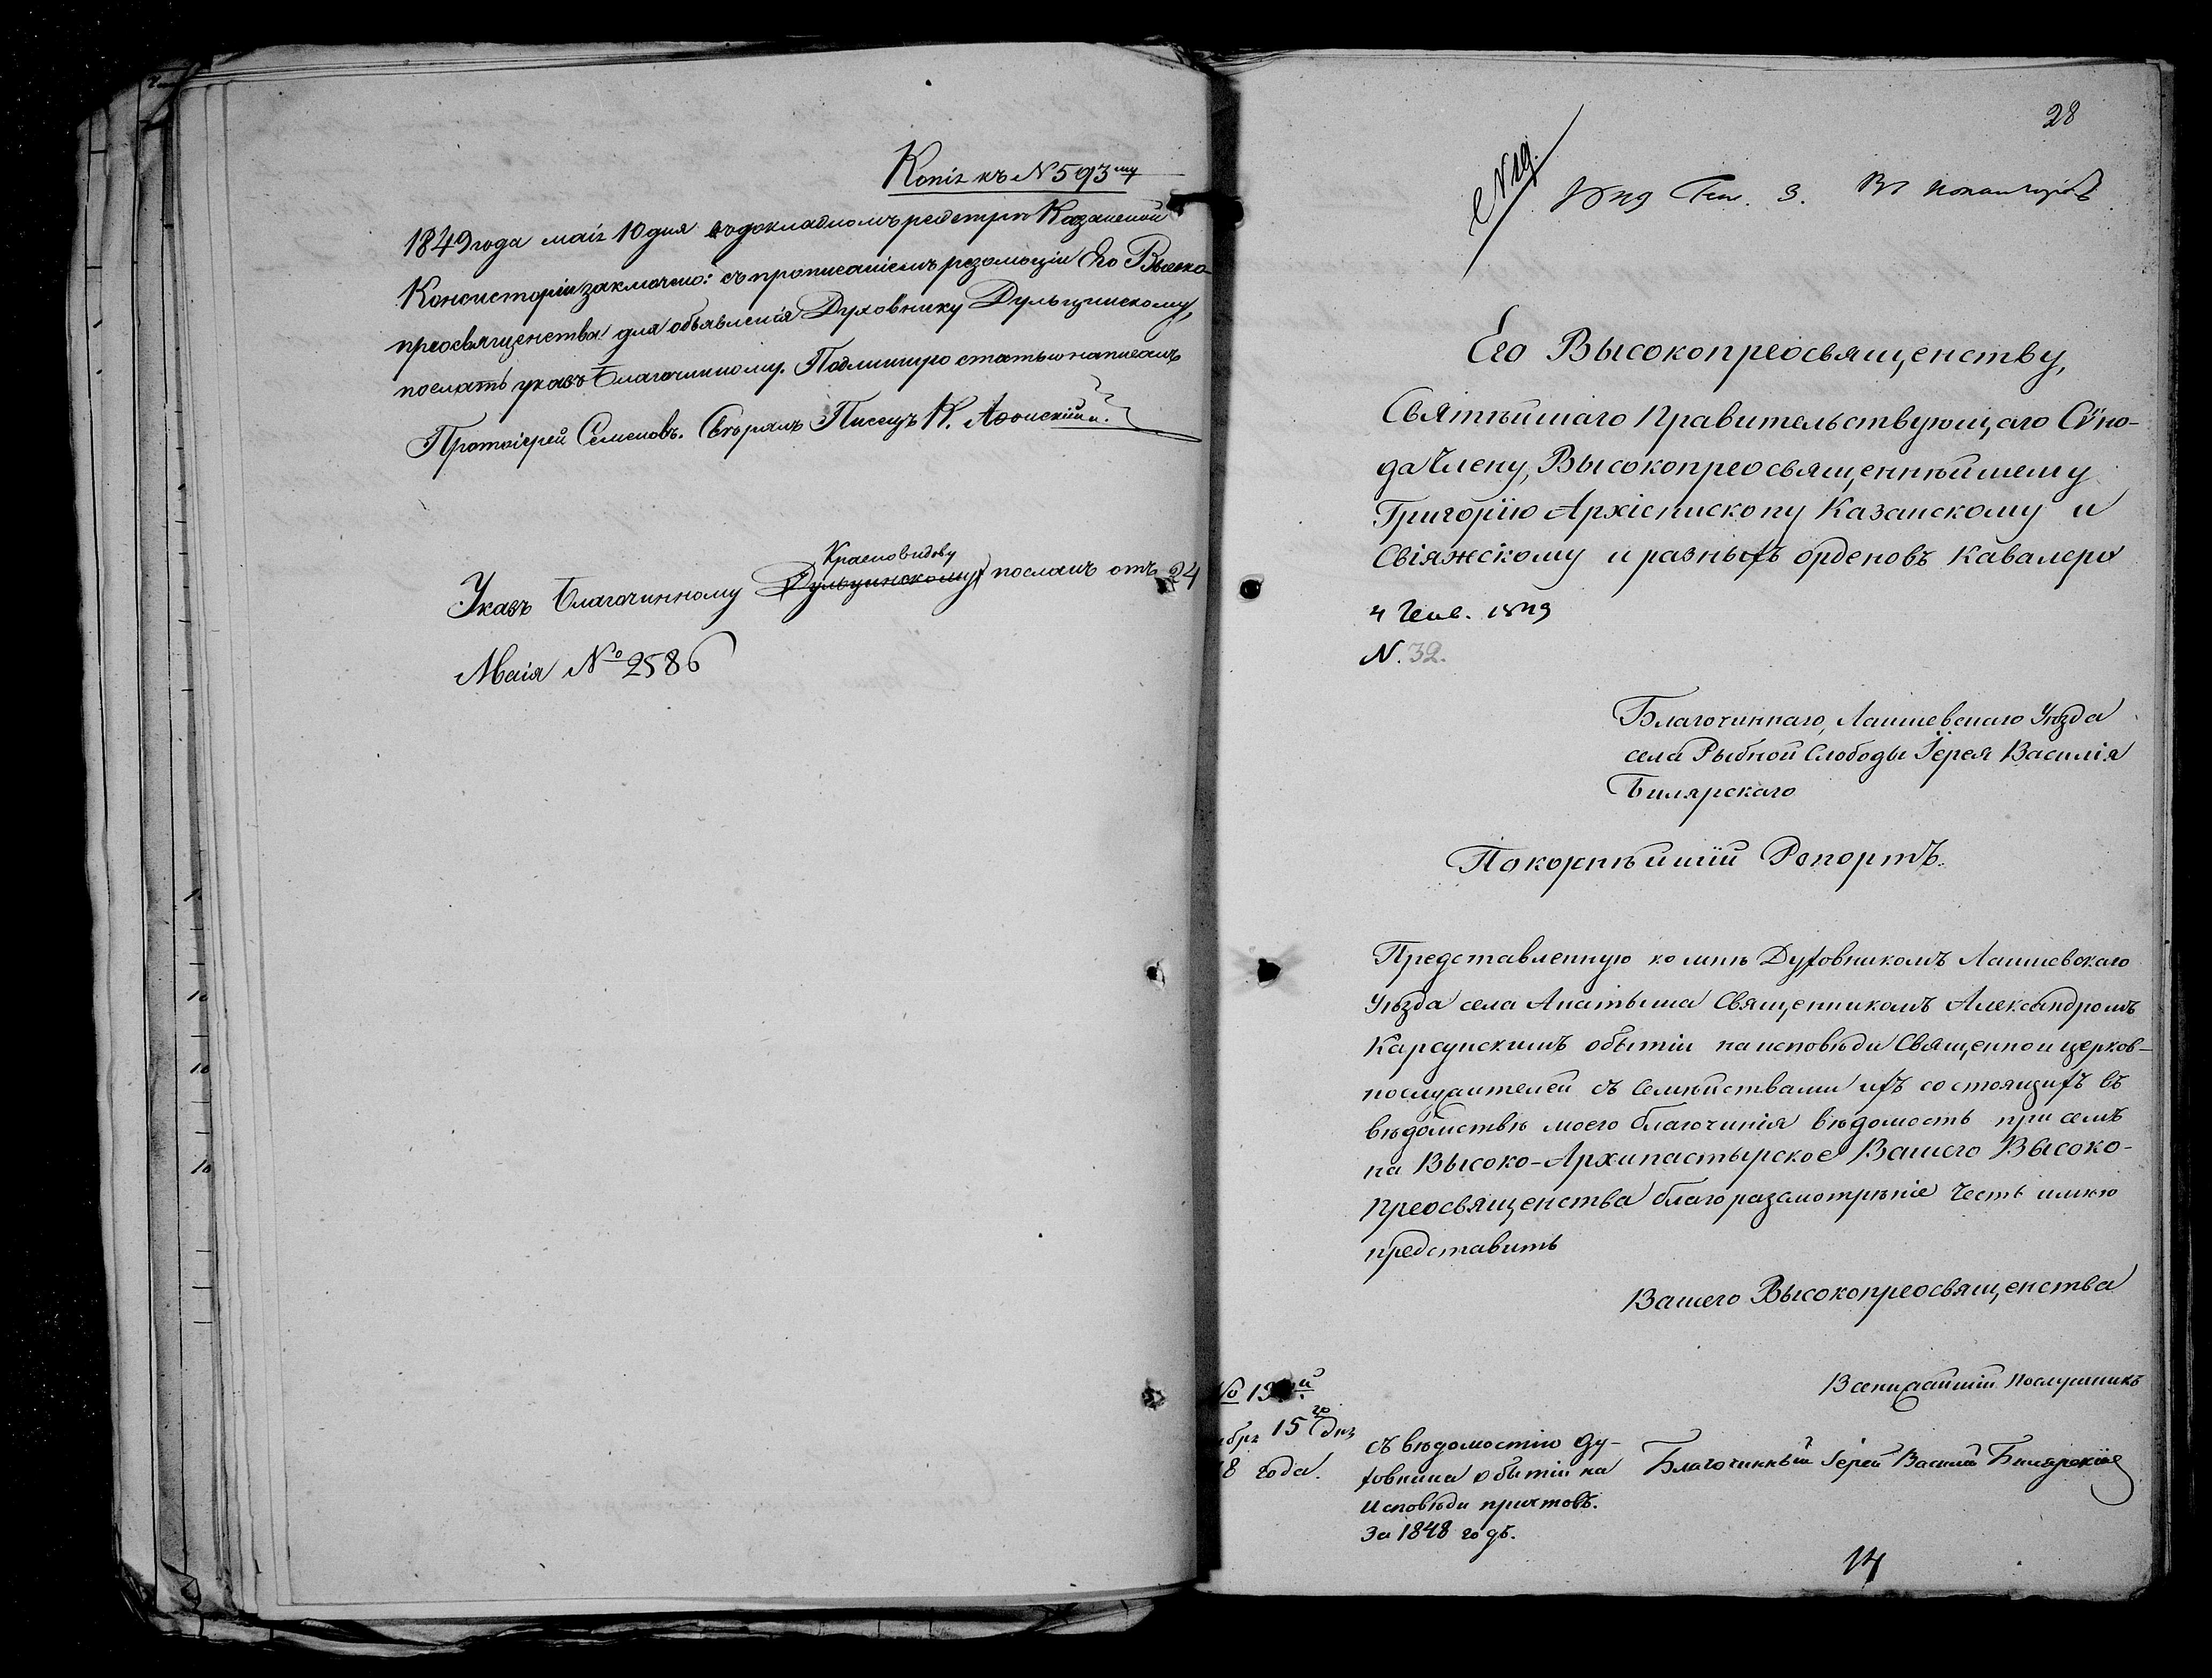 Копія къ N 593му
1849 года маія 10 дня въ докладномъ реестрѣ Казанской
Консисторіи заключено: съ прописаніемъ резолюціи Его Высоко-
преосвященства для объявленія Духовнику Дульцинскому,
послать указъ Благочинному. Подлинную статью написалъ
Протоіерей Семеновъ. Свѣрялъ Писецъ К. Афонскій
Красновидову
Указъ Благочинному Дульцинскому посланъ отъ 24
Маія № 2586
28
N 19.
1849 Ген. 3. Въ Консисторію
Его Высокопреосвященству,
Святѣйшаго Правительствующаго Сѵно-
да Члену, Высокопреосвященнѣйшему
Григорію Архіепископу Казанскому и
Свіяжскому и разныхъ орденовъ Кавалеру
4 Генв. 1849
N. 32.
Благочиннаго, Лаишевскаго Уѣзда
села Рыбной Слободы Іерея Василія
Билярскаго
Покорнѣйшій Репортъ.
Представленную ко мнѣ Духовникомъ Лаишевскаго
Уѣзда села Анатыша Священникомъ Александромъ
Карсунскимъ о бытіи на исповѣди Священно и церков-
нослужителей съ Семѣйствами ихъ состоящихъ въ
вѣдомствѣ моего благочинія вѣдомость при семъ
на Высоко-Архипастырское Вашего Высоко-
преосвященства благоразсмотрѣніе честь имѣю
представить
Вашего Высокопреосвященства
Всенижайшій Послушникъ
Благочинный Іерей Василій Билярскій
№ 13
бря 15го дня
8 года.
Съ вѣдомостію Ду-
ховника о бытіи на
Исповѣди причтовъ.
За 1848 годъ.
14